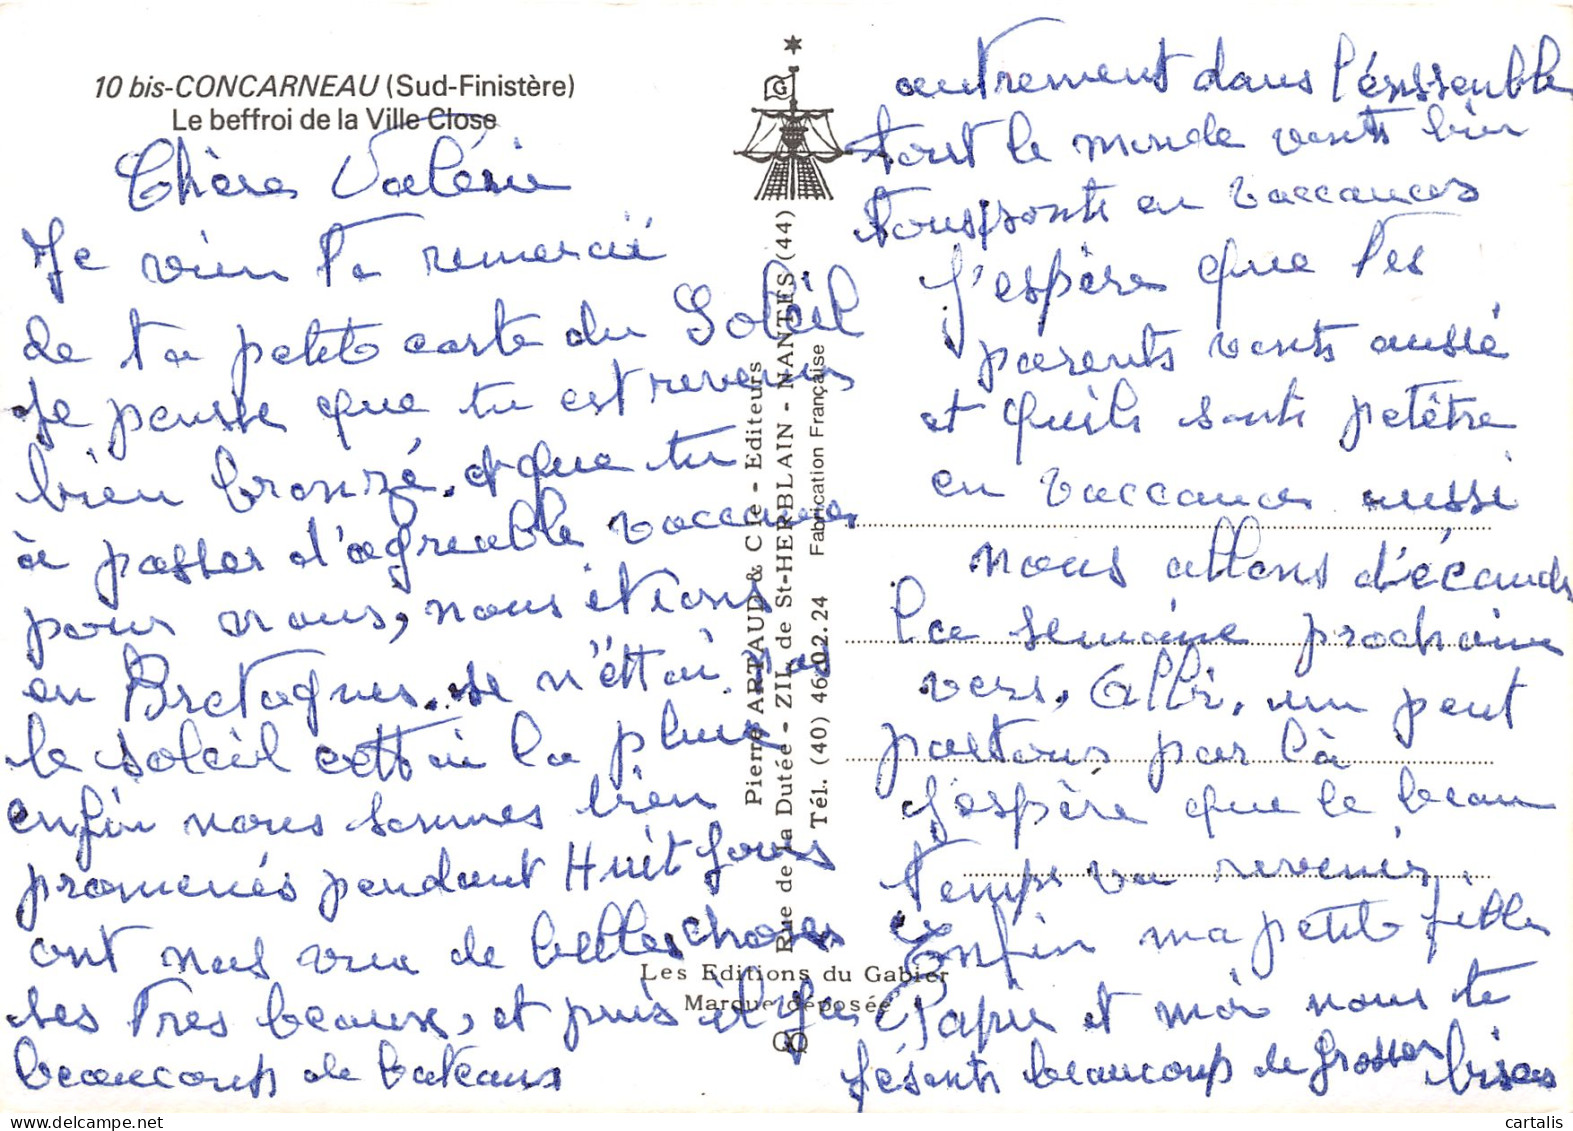 10 bis-CONCARNEAU (Sud-Finistère)
Le beffroi de la Ville Close
Chère Valérie
Je vien te remercié
de ta petite carte du Soleil
Je pense que tu est revenus
bien bronzé. et que tu
à passer d'agreable vaccances
pour nous, nous étions
en Bretagnes. se n'éttai pas
le soleil cettai la pluie
enfin nous sommes bien
promenés pendant Huit Jours
ont nas vue de belles choses
ses très beaux, et puis il y a
beaucoup de bateaux
G
Pierre ARTAUD & Cie - Editeurs
Rue de la Dutée - ZIL de St-HERBLAIN - NANTES (44)
Tél. (40) 46.02.24 Fabrication Française
Les Editions du Gabier
Marque déposée
autrement dans l'enssenble
tout le monde vonts bien
tous sonts en vaccances
J'espère que tes
parents vonts aussi
et quils sonts petêtre
en vaccances aussi
nous allons d'écends
la semaine prochaine
vers, Albi, un peut
partous par là
J'espère que le beau
temps va revenir
Enfin ma petite fille
Papie et moi nous te
fésonts beaucoup de grosses bises